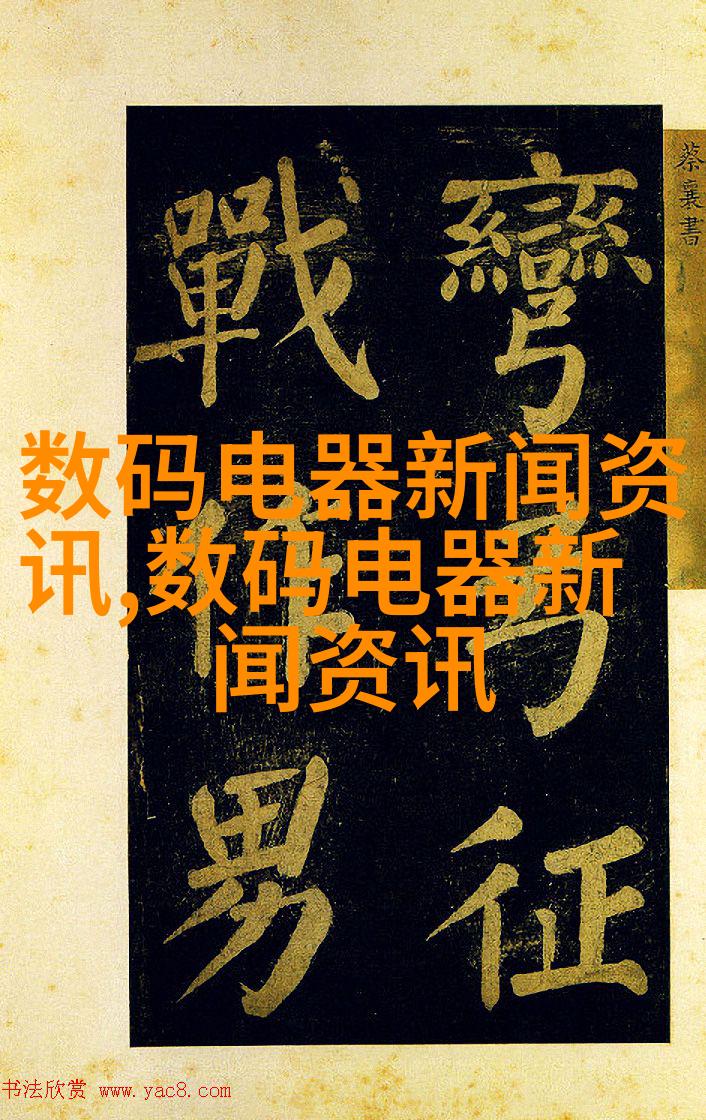 蔡襄書
彎弓征
戰作男
数码电器新闻资
讯,数码电器新
闻资讯
书法欣赏 www.yac8.com